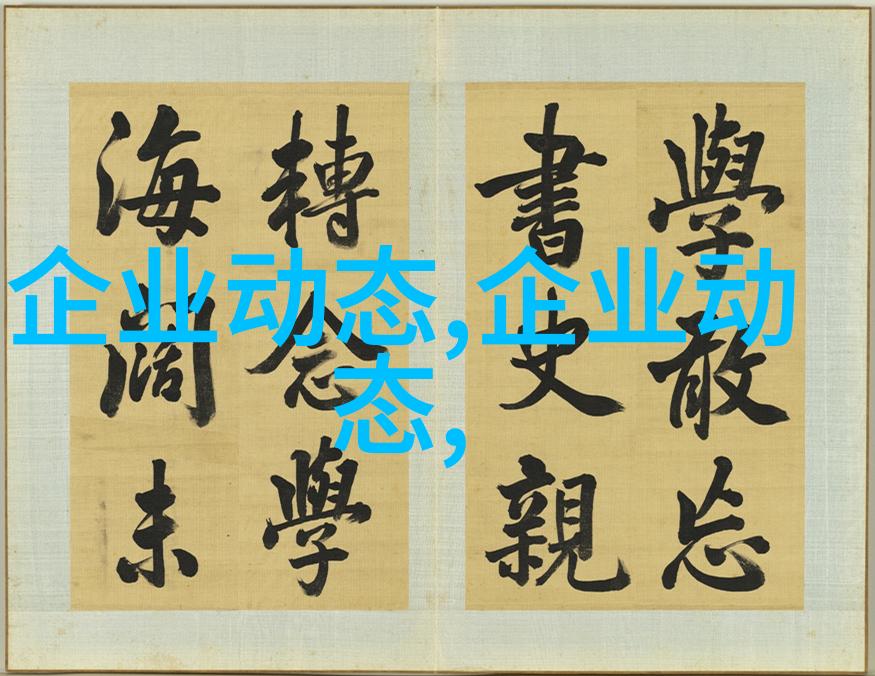 學敢忘
書史親
轉念學
海闊未
企业动态,企业动
态,